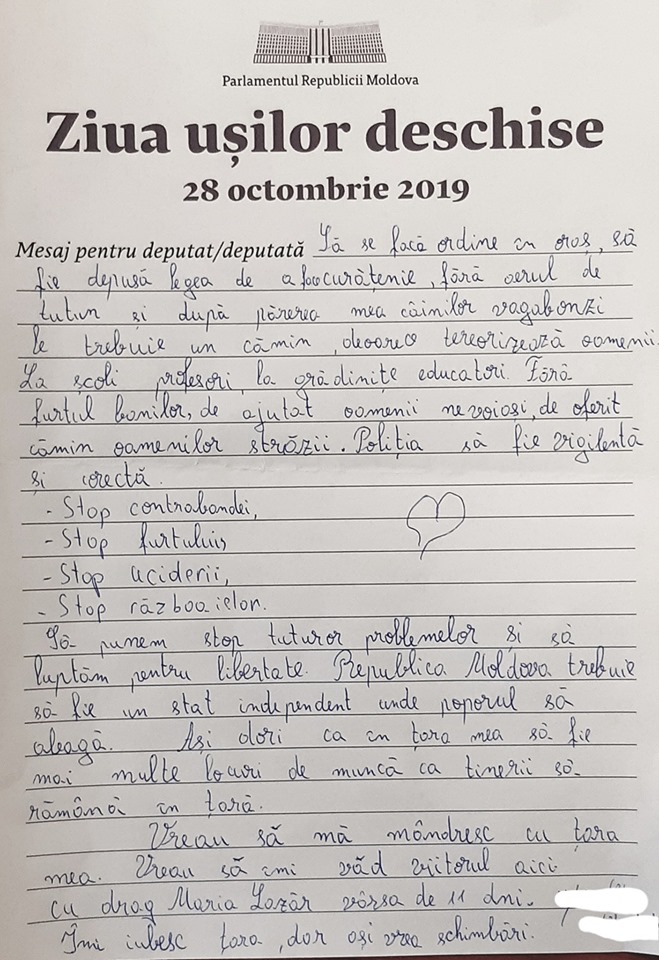 Parlamentul Republicii Moldova
Ziua ușilor deschise
28 octombrie 2019
Mesaj pentru deputat/deputată Să se facă ordine în oraș, să
fie depusă legea de a face curățenie, fără aerul de
tutun și după părerea mea câinilor vagabonzi
le trebuie un cămin, deoarece tereorizează oamenii.
La școli profesori, la grădinițe educatori. Fără
furtul banilor, de ajutat oamenii nevoiași, de oferit
cămin oamenilor străzii. Poliția să fie vigilentă
și corectă.
- Stop contrabandei,
- Stop furtului,
- Stop uciderii,
- Stop războaielor.
Să punem stop tuturor problemelor și să
luptăm pentru libertate. Republica Moldova trebuie
să fie un stat independent unde poporul să
aleagă. Ași dori ca în țara mea să fie
mai multe locuri de muncă ca tinerii să
rămână în țară.
Vreau să mă mândresc cu țara
mea. Vreau să îmi văd viitorul aici
cu drag Maria Lazăr vârsa de 11 ani.
Îmi iubesc țara, dar ași vrea schimbări.